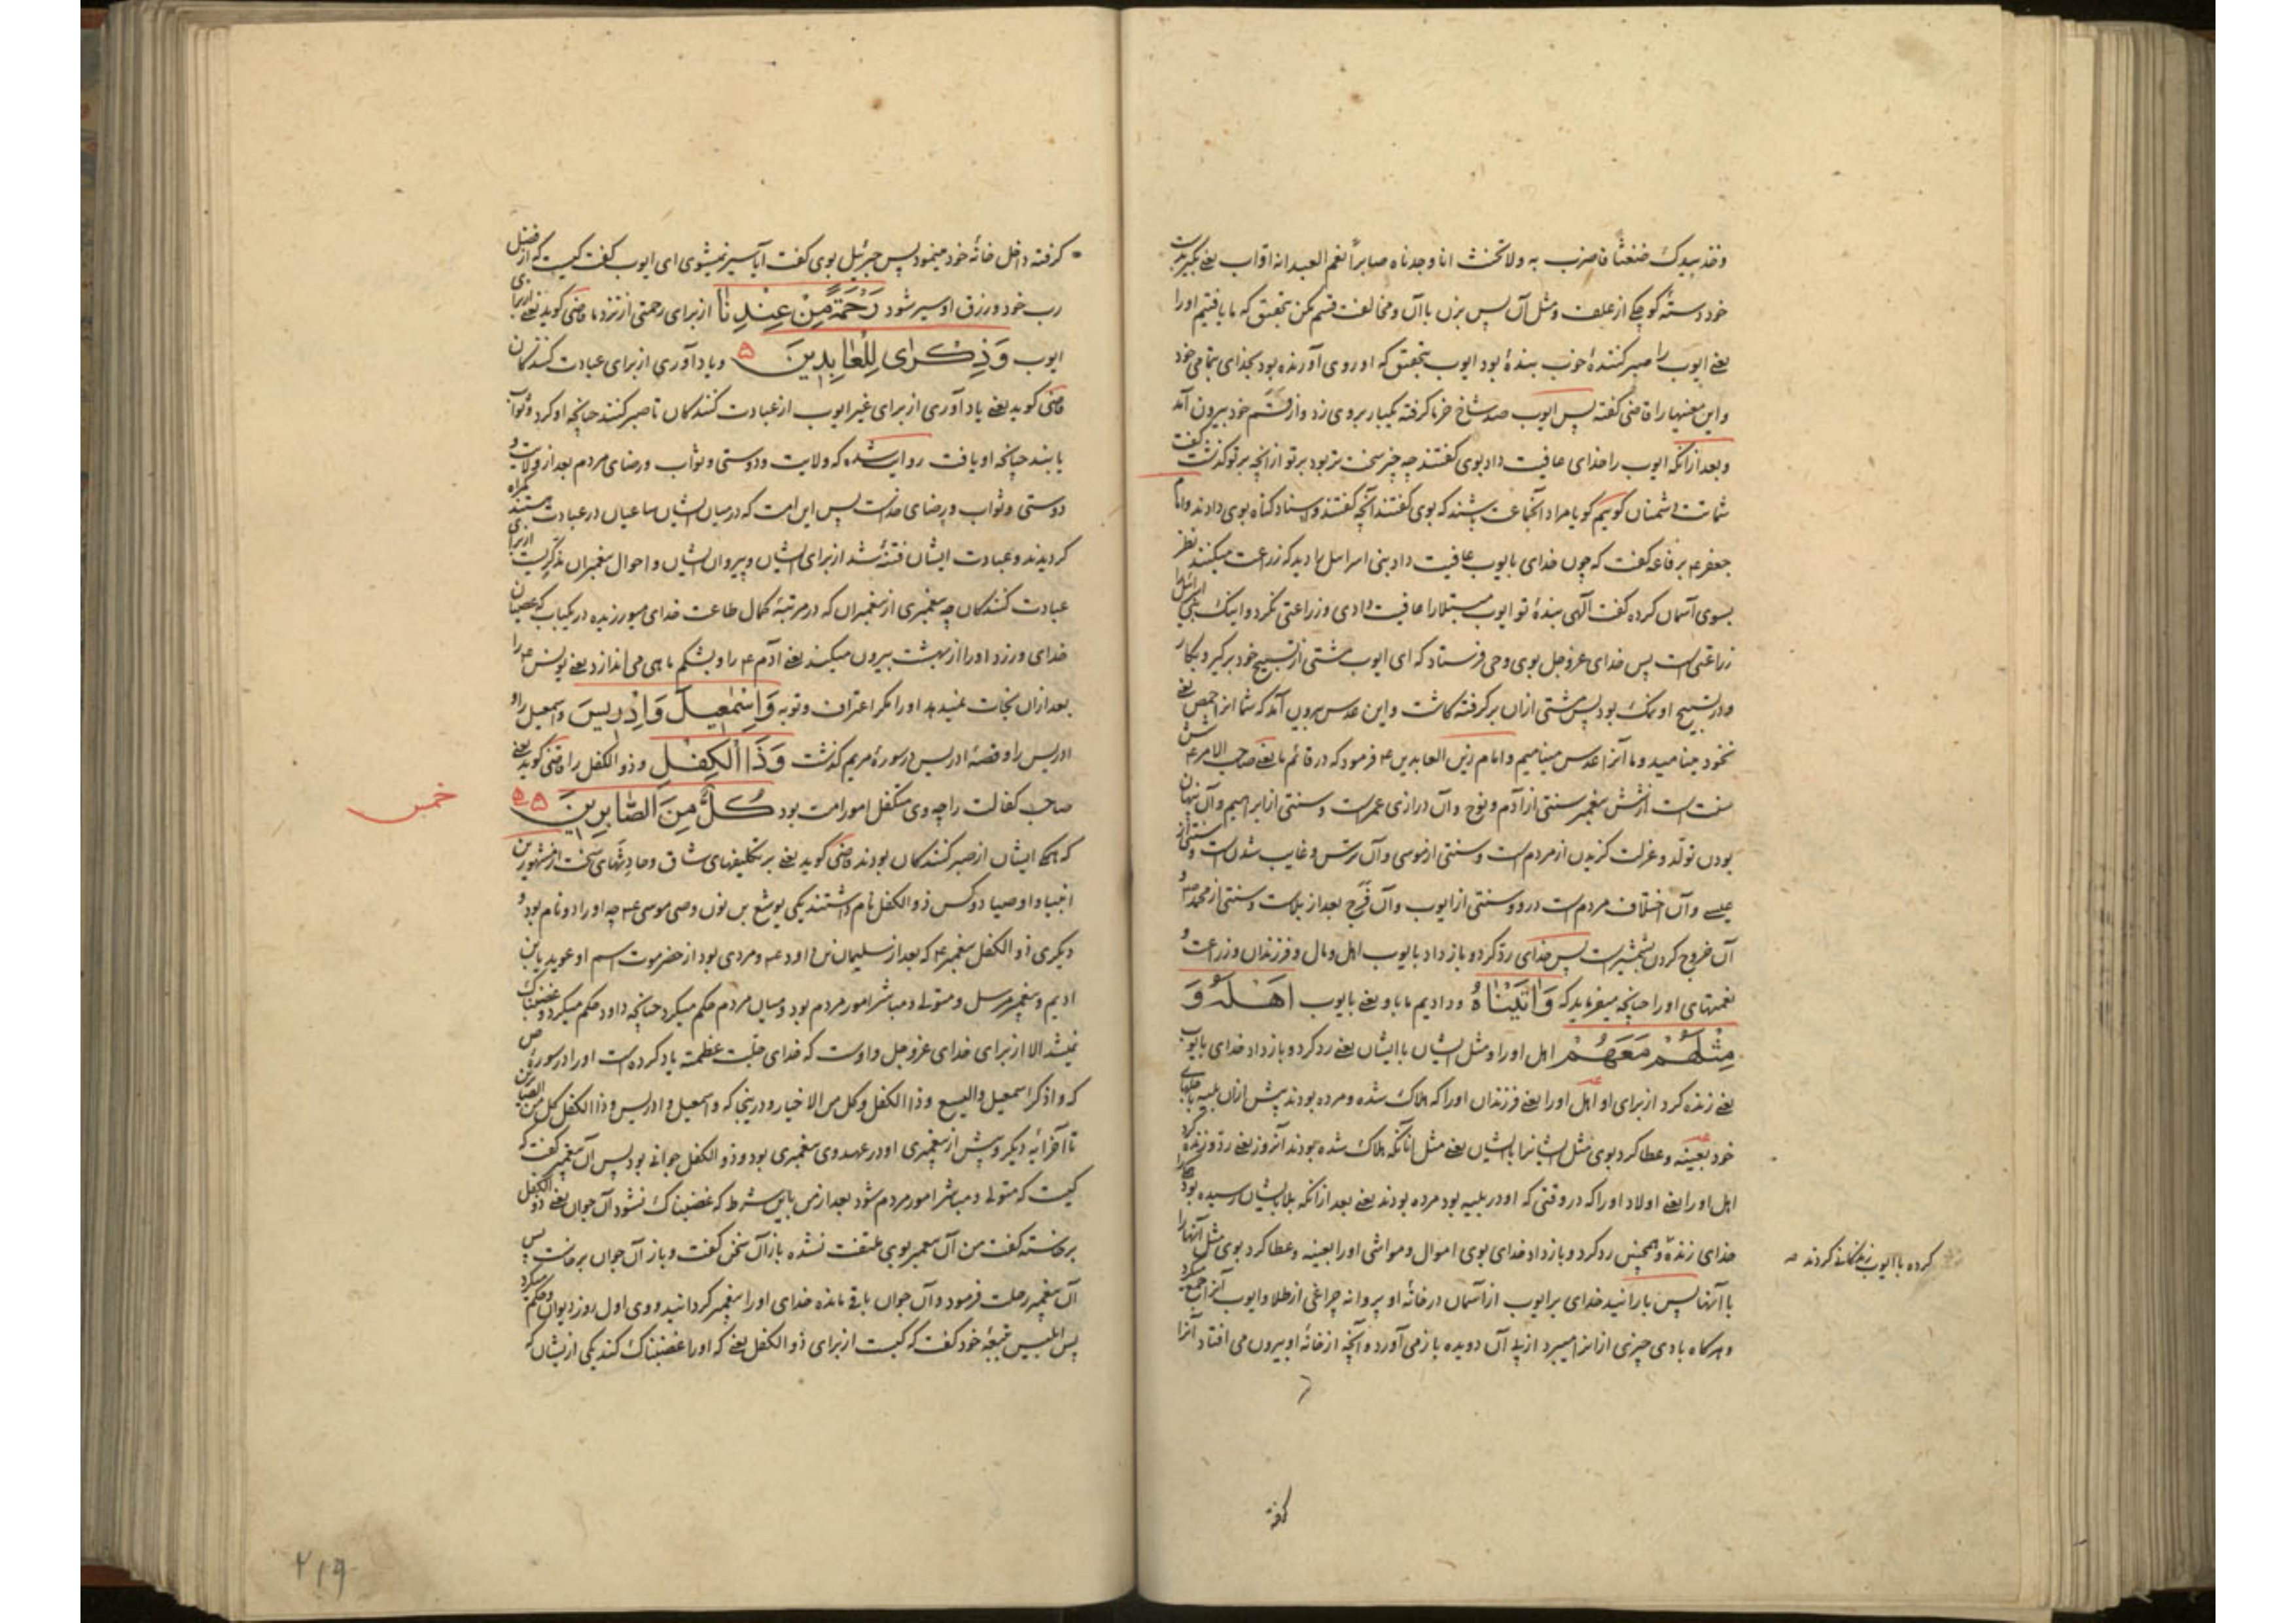 وخذ بیدک ضغثا فاضرب به ولا تحنث انا وجدناه صابراً نعم العبد انه اواب یعنے بگیر بدست
خود دستهٔ کوچکے از علف ومثل آن پس بزن باآن ومخالفت قسم مکن بتحقیق که ما یافتیم اورا
یعنے ایوب را صبر کنندهٔ خوب بندهٔ بود ایوب بتحقیق که او روی آورنده بود بخدای بتمامی خود
واین معنیها را قاضی گفته پس ایوب صد شاخ خرما گرفته یکبار بر وی زد واز قسم خود بیرون آمد
وبعد ازانکه ایوب را خدای عافیت داد بوی گفتند چه چیز سخت تر بود بر تو ازانچه بر تو گذشت گفت
شماتت دشمنان گوییم گویا مراد آنجماعت باشند که بوی گفتند آنچه گفتند واسناد گناه بوی دادند وامام
جعفر ع برفاعه گفت که چون خدای بایوب عافیت داد بنی اسرائیل را دید که زراعت میکنند نظر
بسوی آسمان کرده گفت الهی بندهٔ تو ایوب مبتلا را عافیت دادی وزراعتی نکرد واینک بنی اسرائیل را
زراعتی است پس خدای عزوجل بوی وحی فرستاد که ای ایوب مشتی از تسبیح خود برگیر وبکار
ودر تسبیح او نمک بود پس مشتی ازان بر گرفته کاشت واین عدس بیرون آمد که شما انرا حمص یعنے
نخود مینامید وما آنرا عدس مینامیم وامام زین العابدین ع فرمود که در قائم ما یعنے صاحب الامر ع
سنت است از شش پیغمبر سنتی از آدم ونوح وآن درازی عمر است وسنتی از ابراهیم وآن پنهان
بودن تولّد وعزلت گزیدن از مردم است وسنتی از موسی وآن ترس وغایب شدن است وسنتی از
عیسے وآن اختلاف مردم است درو وسنتی از ایوب وآن فَرَج بعد از بلاست وسنتی از محمد ص و
آن خروج کردن بشمشیر است پس خدای ردّ کرد وباز داد بایوب اهل ومال وفرزندان وزراعت و
نعمتهای اورا چنانچه میفرماید که وَاٰتَیْنَاهُ ودادیم ما باو یعنے بایوب اَهْلَهُ وَ
مِثْلَهُمْ مَعَهُمْ اهل اورا ومثل ایشان با ایشان یعنے رد کرد وباز داد خدای بایوب
یعنے زنده کرد از برای او اهل اورا یعنے فرزندان اورا که هلاک شده ومرده بودند پیش ازان بلیه باجلهای
خود بعینه وعطا کرد بوی مثل ایشانرا با ایشان یعنے مثل انانکه هلاک شده بودند آنروز یعنے رد وزنده کرد
اهل اورا یعنے اولاد اورا که در وقتی که او در بلیه بود مرده بودند یعنے بعد ازانکه بلا بایشان رسیده بود
خدای زنده وهمچنین رد کرد وباز داد خدای بوی اموال ومواشی اورا بعینه وعطا کرد بوی مثل آنها را
با آنها پس بارانید خدای بر ایوب از آسمان در خانهٔ او پروانه چراغی از طلا وایوب آنرا جمع میکرد
وهرگاه بادی چیزی ازانرا میبرد از پی آن دویده باز می آورد وآنچه از خانهٔ او بیرون می افتاد آنرا
کرده با ایوب زندگانی کردند
گرفته
گرفته داخل خانهٔ خود مینمود پس جبرئیل بوی گفت آیا سیر نمیشوی ای ایوب گفت کیست که از فضل
رب خود ورزق او سیر شود رَحْمَةً مِنْ عِنْدِنَا از برای رحمتی از نزد ما قاضی گوید یعنے از برای
ایوب وَذِكْرَاى لِلْعَابِدِينَ ۵ ویاد آوری از برای عبادت کنندگان
قاضی گوید یعنے یاد آوری از برای غیر ایوب از عبادت کنندگان تا صبر کنند چنانچه او کرد وثواب
یابند چنانچه او یافت روایت شده که ولایت ودوستی وثواب ورضای مردم بعد از ولایت و
دوستی وثواب ورضای خداست پس این امت که در میان ایشان ساعیان در عبادت هستند گمراه
گردیدند وعبادت ایشان فتنه شد از برای ایشان وپیروان ایشان واحوال پیغمبران مذکریست از برای
عبادت کنندگان چه پیغمبری از پیغمبران که در مرتبهٔ کمال طاعت خدای میورزیده در یکباب که عصیان
خدای ورزد اورا از بهشت بیرون میکند یعنے آدم ع را وبشکم ماهی می اندازد یعنے یونس ع را
بعد ازان نجات نمیدهد اورا مگر اعتراف وتوبه وَاِسْمٰعِيلَ وَاِدْرِيسَ واسمعیل را و
ادریس را وقصهٔ ادریس در سورهٔ مریم گذشت وَذَا الْكِفْلِ وذو الکفل را قاضی گوید یعنے
صاحب کفالت را چه وی متکفل امور امت بود كُلٌّ مِنَ الصَّابِرِينَ ۵۵
خمس
که همهٔ ایشان از صبر کنندگان بودند قاضی گوید یعنے بر تکلیفهای شاق وحادثهای سخت از مشهورین
انبیا واوصیا دو کس ذو الکفل نام داشتند یکی یوشع بن نون وصی موسی ع چه اورا دو نام بود و
دیگری ذو الکفل پیغمبر ع که بعد از سلیمان بن داود ع ومردی بود از حضرموت اسم او عویدیا بن
ادیم وپیغمبر مرسل ومتولے ومباشر امور مردم بود ومیان مردم حکم میکرد چنانچه داود حکم میکرد وغضبناک
نمیشد الا از برای خدای عزوجل واوست که خدای جلّت عظمته یاد کرده است اورا در سورهٔ ص
که واذکر اسمعیل والیسع وذا الکفل وکل من الاخیار ودرینجا که واسمعیل وادریس وذا الکفل کل من الصابرین
تا آخر آیهٔ دیگر وپیش از پیغمبری او در عهد وی پیغمبری بود وذو الکفل جوانے بود پس آن پیغمبر گفت که
کیست که متولے ومباشر امور مردم شود بعد از من باین شرط که غضبناک نشود آن جوان یعنے ذو الکفل
برخاسته گفت من آن پیغمبر بوی ملتفت نشده باز آن سخن گفت وباز آن جوان برخاست پس
آن پیغمبر رحلت فرمود وآن جوان باقے مانده خدای اورا پیغمبر گردانید ووی اول روز دیوان وحکم میکرد
پس ابلیس بتبعهٔ خود گفت که کیست از برای ذو الکفل یعنے که اورا غضبناک کند یکی ازیشان که
۲۱۹